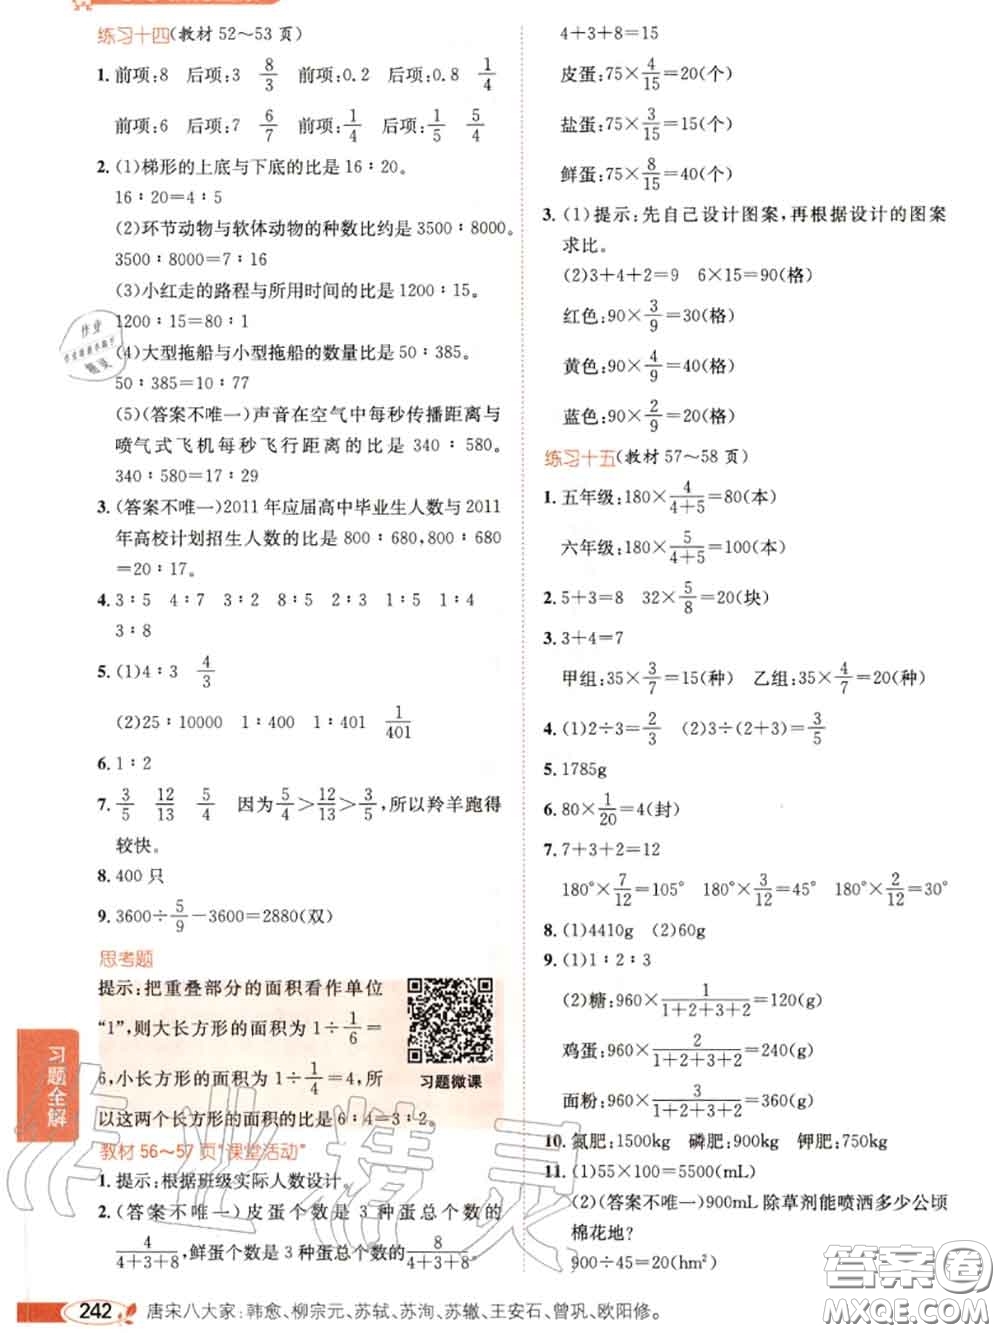 练习十四(教材 52～53 页)
1. 前项:8 后项:3 8/3 前项:0.2 后项:0.8 1/4
前项:6 后项:7 6/7 前项:1/4 后项:1/5 5/4
2. (1)梯形的上底与下底的比是 16∶20。
16∶20=4∶5
(2)环节动物与软体动物的种数比约是 3500∶8000。
3500∶8000=7∶16
(3)小红走的路程与所用时间的比是 1200∶15。
1200∶15=80∶1
(4)大型拖船与小型拖船的数量比是 50∶385。
50∶385=10∶77
(5)(答案不唯一)声音在空气中每秒传播距离与
喷气式飞机每秒飞行距离的比是 340∶580。
340∶580=17∶29
3. (答案不唯一)2011 年应届高中毕业生人数与 2011
年高校计划招生人数的比是 800∶680,800∶680
=20∶17。
4. 3∶5 4∶7 3∶2 8∶5 2∶3 1∶5 1∶4
3∶8
5. (1)4∶3 4/3
(2)25∶10000 1∶400 1∶401 1/401
6. 1∶2
7. 3/5 12/13 5/4 因为5/4>12/13>3/5,所以羚羊跑得
较快。
8. 400 只
9. 3600÷5/9-3600=2880(双)
思考题
提示:把重叠部分的面积看作单位
“1”,则大长方形的面积为 1÷1/6=
6,小长方形的面积为 1÷1/4=4,所
以这两个长方形的面积的比是 6∶4=3∶2。
习题微课
教材 56～57 页“课堂活动”
1. 提示:根据班级实际人数设计。
2. (答案不唯一)皮蛋个数是 3 种蛋总个数的
4/(4+3+8),鲜蛋个数是 3 种蛋总个数的8/(4+3+8)。
4+3+8=15
皮蛋:75×4/15=20(个)
盐蛋:75×3/15=15(个)
鲜蛋:75×8/15=40(个)
3. (1)提示:先自己设计图案,再根据设计的图案
求比。
(2)3+4+2=9 6×15=90(格)
红色:90×3/9=30(格)
黄色:90×4/9=40(格)
蓝色:90×2/9=20(格)
练习十五(教材 57～58 页)
1. 五年级:180×4/(4+5)=80(本)
六年级:180×5/(4+5)=100(本)
2. 5+3=8 32×5/8=20(块)
3. 3+4=7
甲组:35×3/7=15(种) 乙组:35×4/7=20(种)
4. (1)2÷3=2/3 (2)3÷(2+3)=3/5
5. 1785g
6. 80×1/20=4(封)
7. 7+3+2=12
180°×7/12=105° 180°×3/12=45° 180°×2/12=30°
8. (1)4410g (2)60g
9. (1)1∶2∶3
(2)糖:960×1/(1+2+3+2)=120(g)
鸡蛋:960×2/(1+2+3+2)=240(g)
面粉:960×3/(1+2+3+2)=360(g)
10. 氮肥:1500kg 磷肥:900kg 钾肥:750kg
11. (1)55×100=5500(mL)
(2)(答案不唯一)900mL 除草剂能喷洒多少公顷
棉花地?
900÷45=20(hm²)
习题全解
242 唐宋八大家:韩愈、柳宗元、苏轼、苏洵、苏辙、王安石、曾巩、欧阳修。
作业精灵
答案卷
MXQE.COM